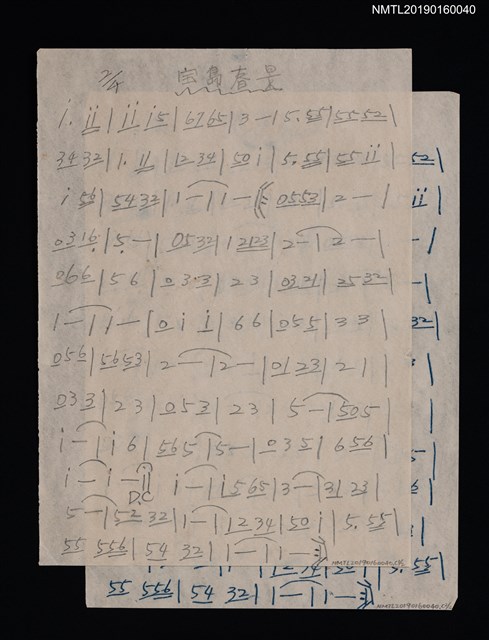 NMTL20190160040
2/4 宝島春景
i. ii | ii i5 | 6765 | 3 — | 5. 55 | 55 52 |
34 32 | 1. 11 | 12 34 | 50 i | 5. 55 | 55 ii |
i 56 | 54 32 | 1 — | 1 — ( 0553 | 2 — |
0316 | 5 — | 0532 | 12123 | 2 — | 2 — |
066 | 5 6 | 0 3·3 | 2 3 | 03 21 | 25 32 |
1 — | 1 — | 0 i i | 6 6 | 055 | 3 3 |
056 | 5653 | 2 — | 2 — | 01 23 | 2 1 |
033 | 2 3 | 053 | 2 3 | 5 — | 505 |
i — | i 6 | 565 | 5 — | 035 | 656 |
i — | i — || i — | i 565 | 3 — | 31 23 |
D.C
5 — | 52 32 | 1 — | 12 34 | 50 i | 5. 55 |
55 556 | 54 32 | 1 — | 1 — ||
55 556 | 54 32 | 1 — | 1 — ||